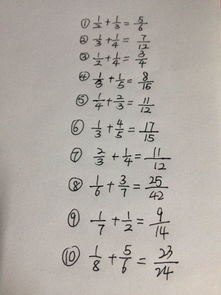 ① 1/2 + 1/3 = 5/6
② 1/3 + 1/4 = 7/12
③ 1/2 + 1/4 = 3/4
④ 1/3 + 1/5 = 8/15
⑤ 1/4 + 2/3 = 11/12
⑥ 1/3 + 4/5 = 17/15
⑦ 2/3 + 1/4 = 11/12
⑧ 1/6 + 3/7 = 25/42
⑨ 1/7 + 1/2 = 9/14
⑩ 1/8 + 5/6 = 23/24